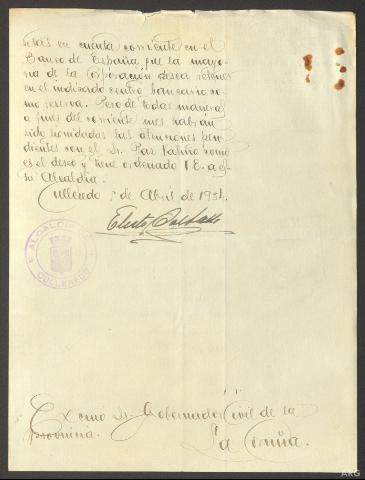 setas en cuenta corriente en el
Banco de España que la mayo-
ria de la Corporación desea retener
en el indicado centro bancario co
mo reserva. Pero de todas maneras
a fines del corriente mes habrán
sido liquidadas las atenciones pen
dientes con el Sr. Paz Patiño como
es el deseo y tiene ordenado V.E. a es
ta Alcaldia.
Culleredo 5 de Abril de 1934.
ALCALDIA DE
CULLEREDO
Excmo Sr. Gobernador Civil de la
provincia.
La Coruña.
ARG